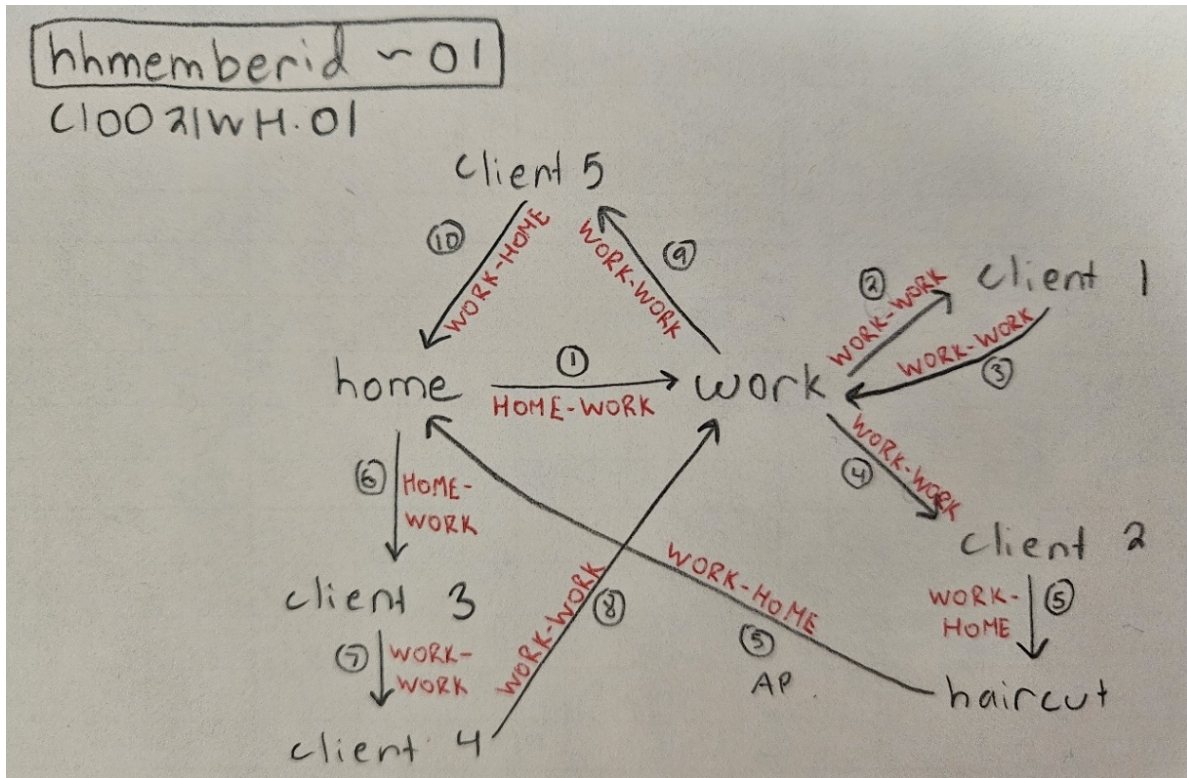 hhmemberid ~ 01
C10021WH.01
client 5
10
WORK-HOME
WORK-WORK
9
2
WORK-WORK
client 1
WORK-WORK
3
home
1
HOME-WORK
work
WORK-WORK
4
6
HOME-
WORK
client 2
WORK-
HOME
5
client 3
WORK-HOME
WORK-WORK
8
7
WORK-
WORK
5
AP.
haircut
client 4